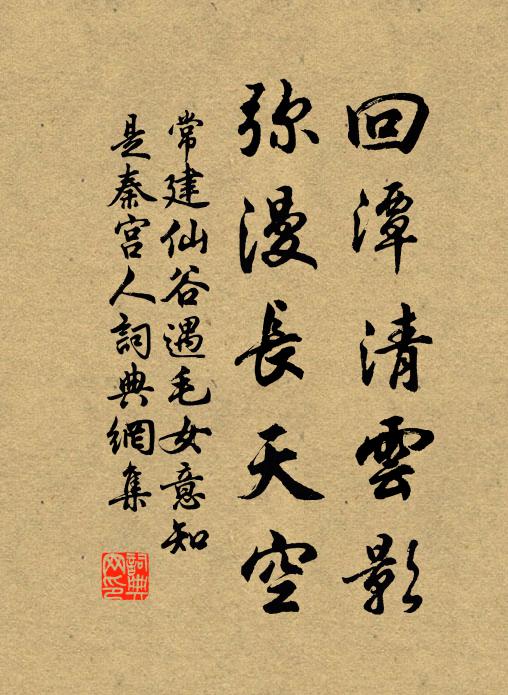 回潭清雲影
弥漫長天空
常建仙谷遇毛女意知
是秦宮人詞典網集
詞典
网印